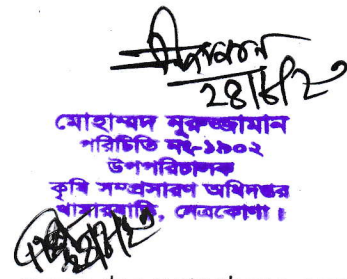 ২৪/৮/২৩
মোহাম্মদ নূরুজ্জামান
পরিচিতি নং-১৯০২
উপপরিচালক
কৃষি সম্প্রসারণ অধিদপ্তর
খামারবাড়ি, নেত্রকোণা।